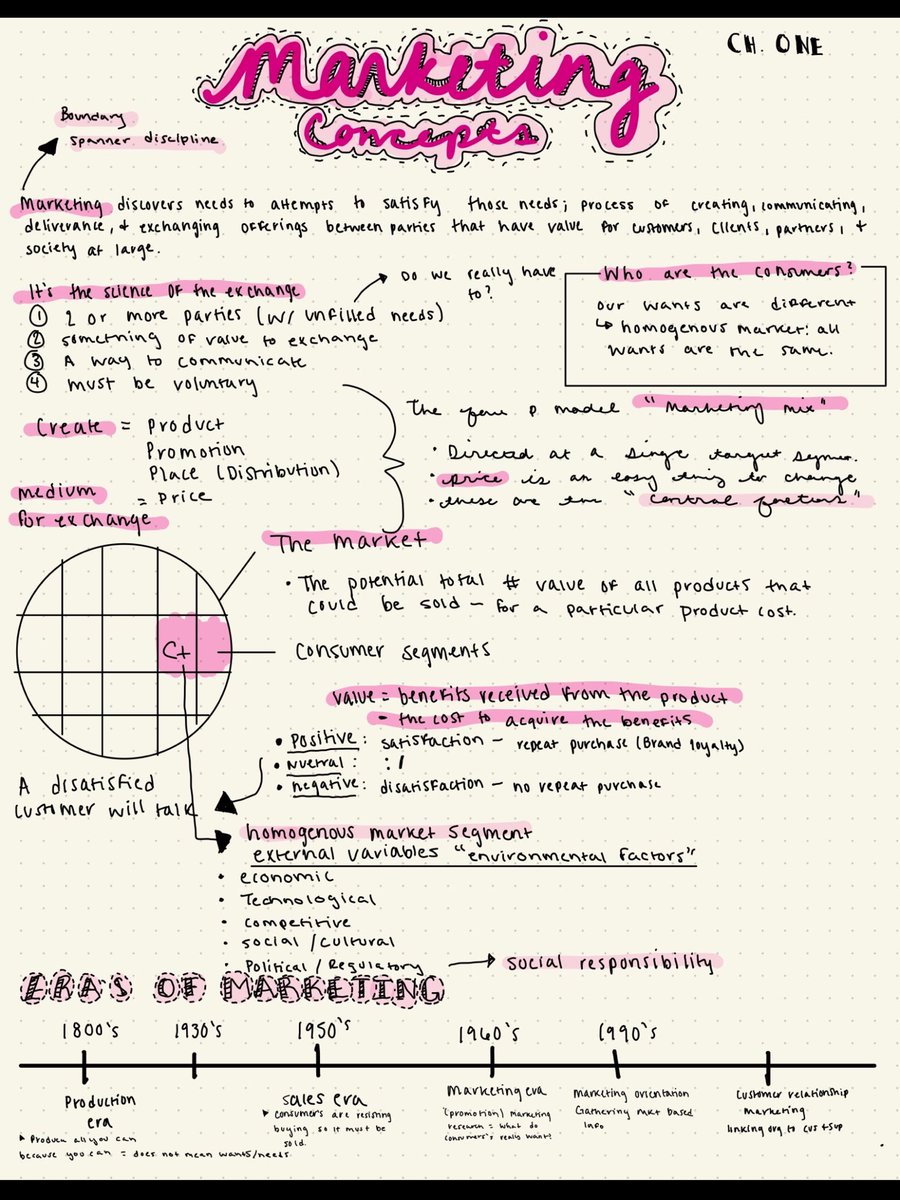 CH. ONE
Marketing
Concepts
Boundary
spanner discipline
Marketing discovers needs to attempts to satisfy those needs; process of creating, communicating,
deliverance, + exchanging offerings between parties that have value for customers, clients, partners, +
society at large.
It's the science of the exchange
① 2 or more parties (w/ unfilled needs)
② something of value to exchange
③ A way to communicate
④ must be voluntary
Do we really have
to?
Who are the consumers?
our wants are different
↳ homogenous market: all
wants are the same.
Create = Product
Promotion
Place (Distribution)
medium = Price
for exchange
The four p model "marketing mix"
• Directed at a single target segmen.
• price is an easy thing to change
• these are the "control factors"
The market
• The potential total # value of all products that
could be sold – for a particular product cost.
C+
Consumer segments
value = benefits received from the product
- the cost to acquire the benefits
• Positive: satisfaction – repeat purchase (Brand loyalty)
• Nuetral: :/
• negative: disatisfaction – no repeat purchase
A disatisfied
customer will talk
homogenous market segment
external variables "environmental factors"
• economic
• Technological
• competitive
• social / cultural
• Political / Regulatory → social responsibility
ERAS OF MARKETING
1800's 1930's 1950's 1960's 1990's
Production
era
▸ Produce all you can
because you can = does not mean wants/needs
sales era
▸ consumers are resisting
buying, so it must be
sold.
Marketing era
(promotion) Marketing
research = what do
consumers's really want!
Marketing orientation
Gathering mkt based
info
Customer relationship
marketing
linking org to cus + sup